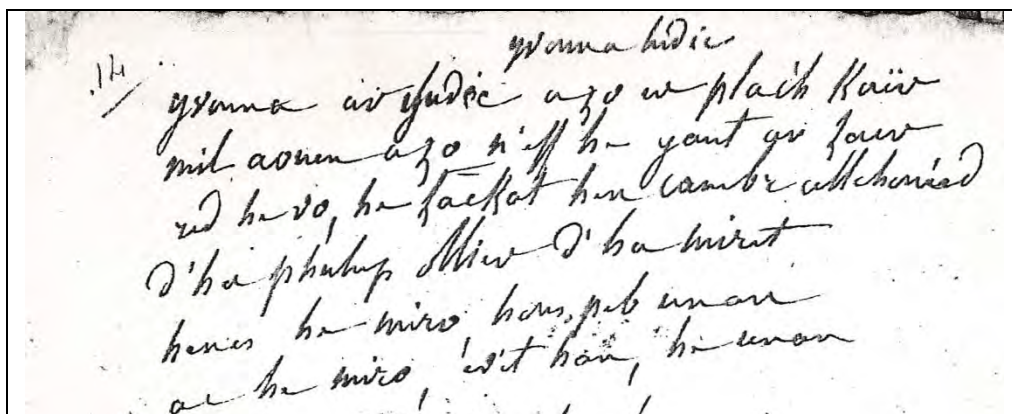 yvonna ludic
14/ yvonna ar yudec a zo ur plac'h Kaër
mil aouen a zo n'eff he gant ar laer
red he vo, he lackat hen cambr allchoueàd
d'ha phulup ollier d'ha miret
henes he miro, hous, peb unan
ac he miro, evit han, he unan